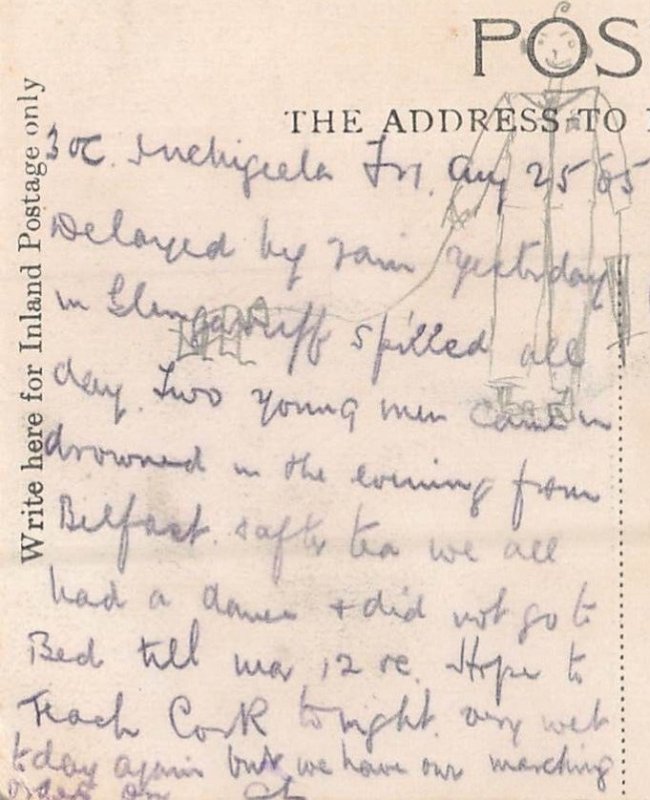 POS
THE ADDRESS TO
Write here for Inland Postage only
3 oc. Inchigeela Fri. Aug 25 05
Delayed by rain yesterday
in Glengarriff spilled all
day. Two young men came in
drowned in the evening from
Belfast. & after tea we all
had a dance & did not go to
Bed till near 12 oc. Hope to
reach Cork tonight. very wet
today again but we have our marching
orders on